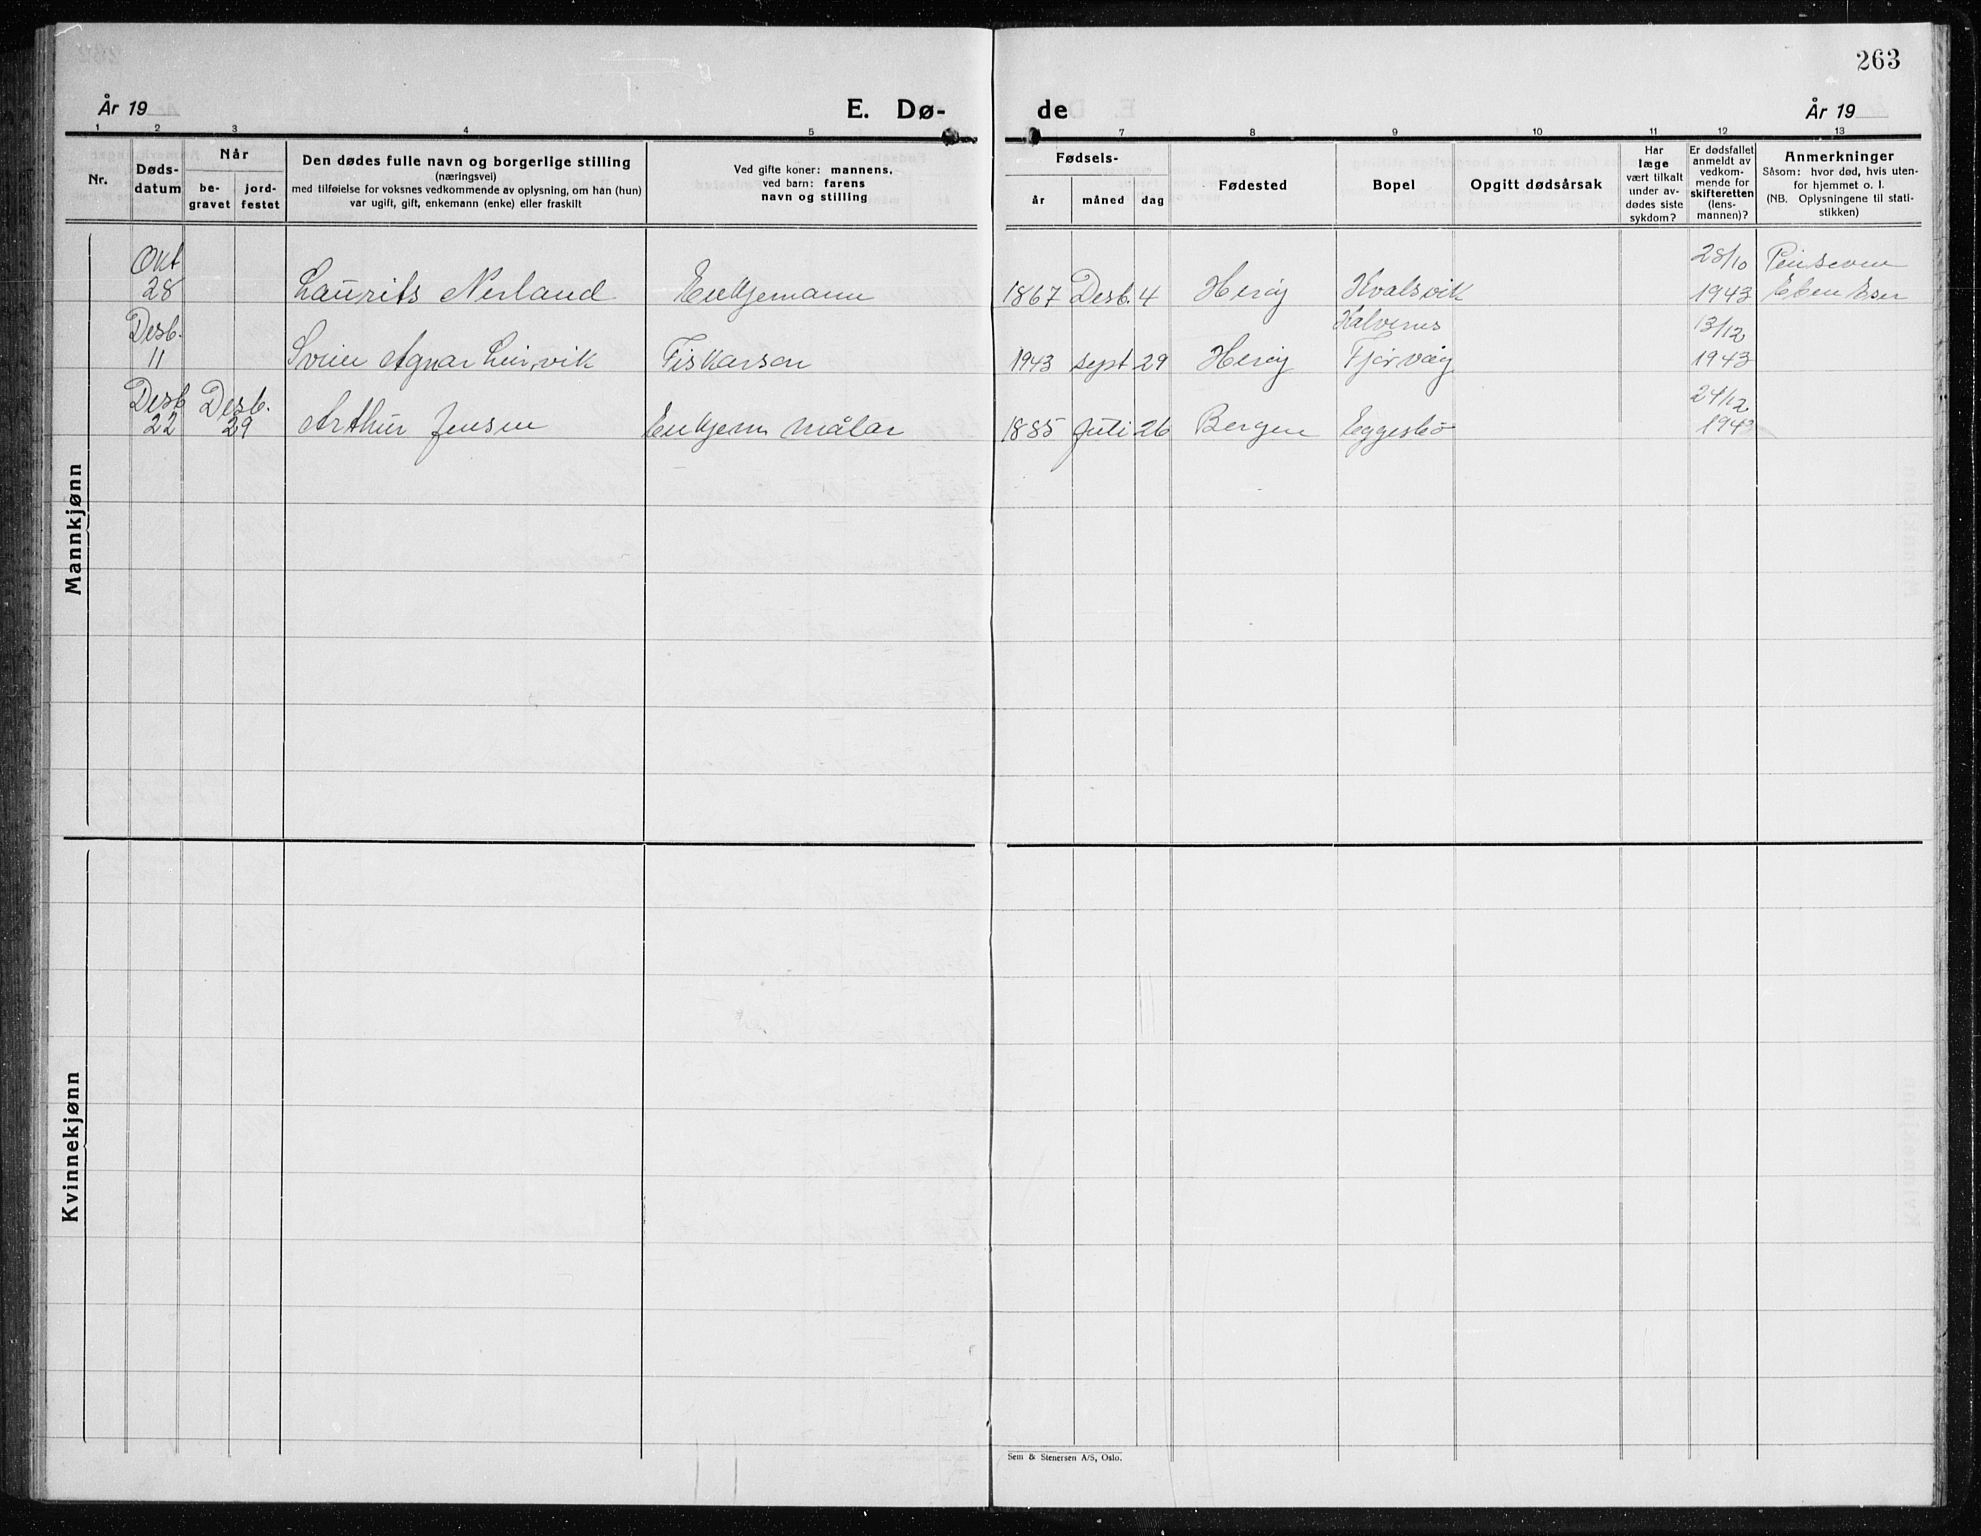 263
År 19
E. Dø-
de
År 19
1 2 3 4 5 7 8 9 10 11 12 13
Nr.
Døds-
datum
Når
be-
gravet
jord-
festet
Den dødes fulle navn og borgerlige stilling
(næringsvei)
med tilføielse for voksnes vedkommende av oplysning, om han (hun)
var ugift, gift, enkemann (enke) eller fraskilt
Ved gifte koner: mannens.
ved barn: farens
navn og stilling
Fødsels-
år måned dag
Fødested
Bopel
Opgitt dødsårsak
Har
læge
vært tilkalt
under av-
dødes siste
sykdom?
Er dødsfallet
anmeldt av
vedkom-
mende for
skifteretten
(lens-
mannen)?
Anmerkninger
Såsom: hvor død, hvis uten-
for hjemmet o. l.
(NB. Oplysningene til stati-
stikken)
Mannkjønn
Okt 28/10
28 Laurits Nerland Enkjemann 1867 Desb. 4 Herøy Kvalsvik 1943 Eben Eser
Desb. 13/12
11 Agnar Leirvik Fiskarson 1943 sept 29 Herøy Tjørvåg 1943
Desb Desb. 24/12
22 29 Arthur Jensen Enkjem målar 1885 Juli 26 Bergen Eggesbø 1943
Kvinnekjønn
Sem & Stenersen A/S, Oslo.